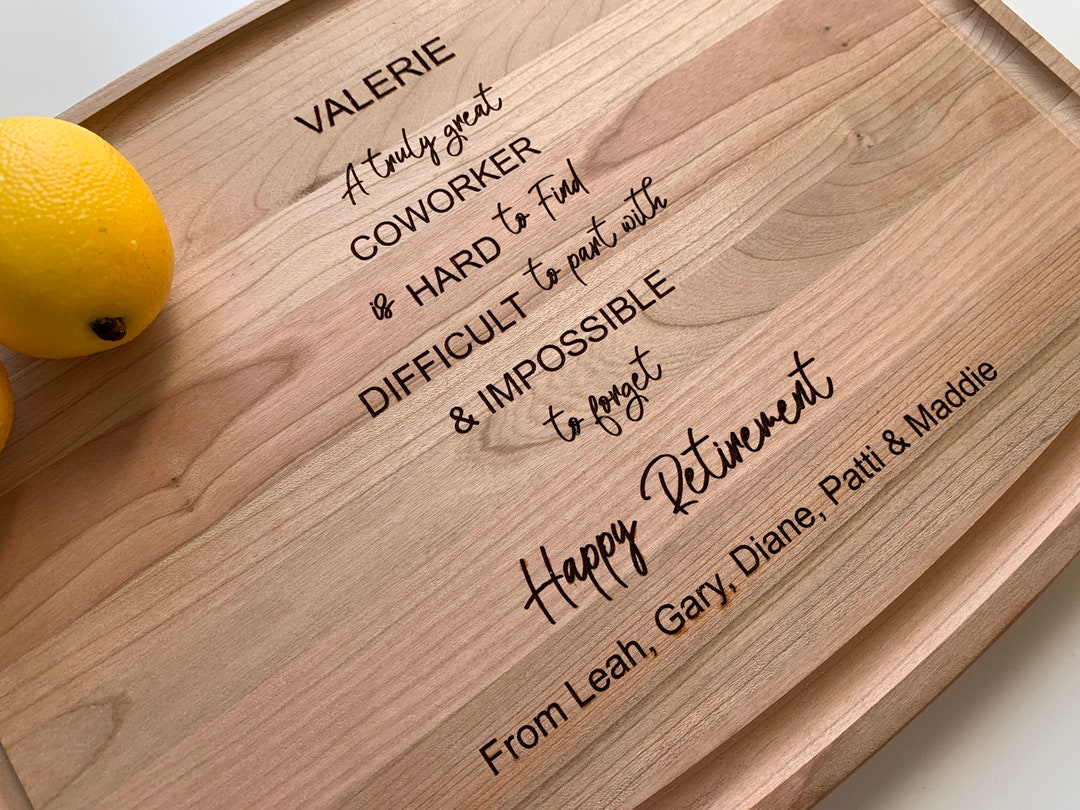 VALERIE
A truly great
COWORKER
is HARD to Find
DIFFICULT to part with
& IMPOSSIBLE
to forget
Happy Retirement
From Leah, Gary, Diane, Patti & Maddie